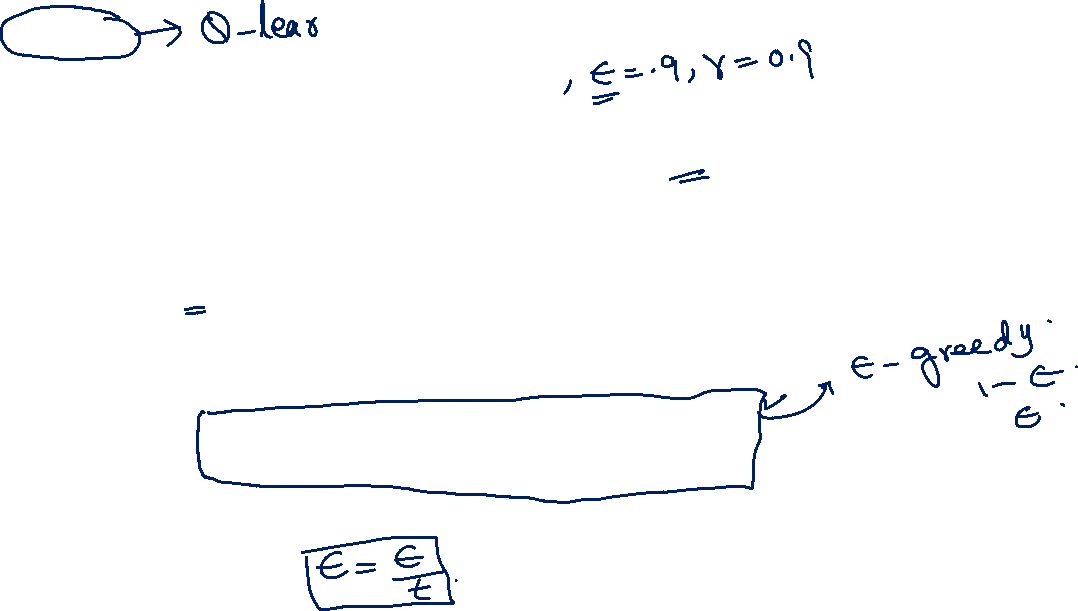 → Q-lear
, ϵ = .9, γ = 0.9
=
=
ϵ - greedy
1 - ϵ
ϵ
ϵ = ϵ/t